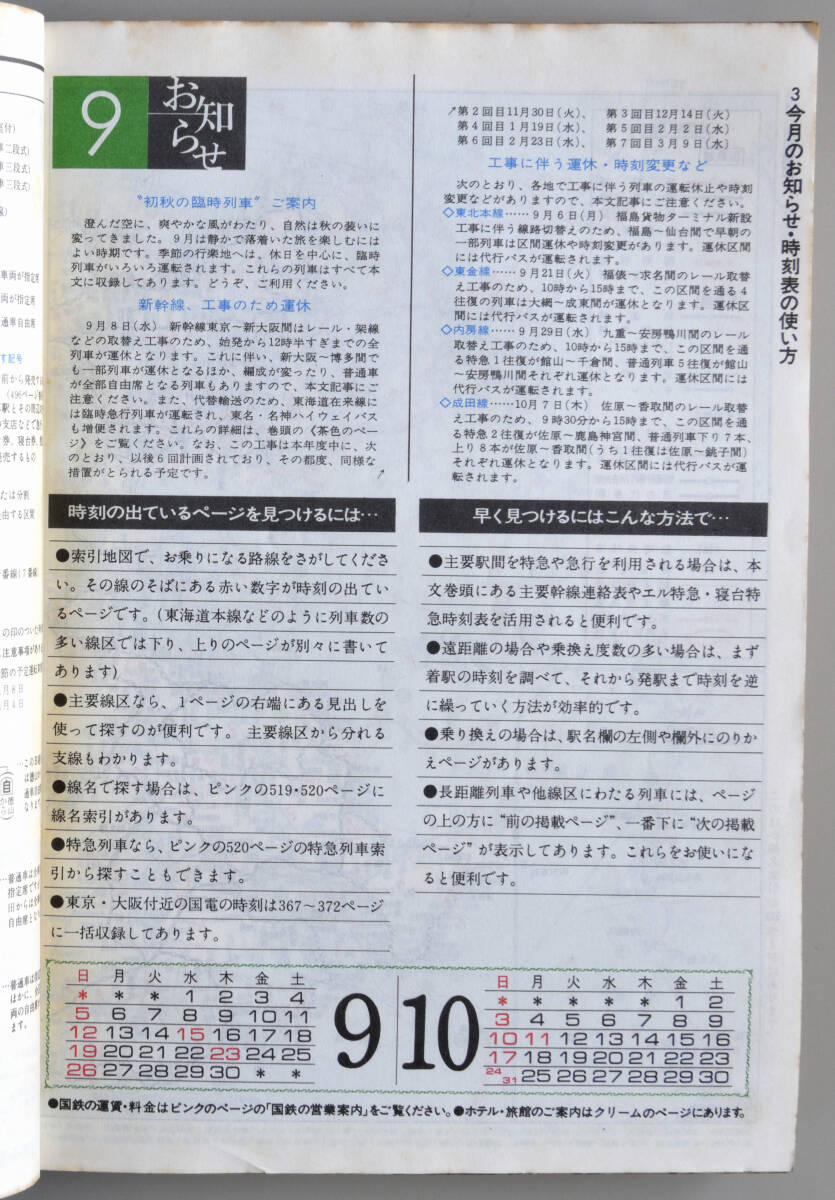 9
お知らせ
〝初秋の臨時列車〟ご案内
澄んだ空に、爽やかな風がわたり、自然は秋の装いに
変ってきました。9月は静かで落着いた旅を楽しむには
よい時期です。季節の行楽地へは、休日を中心に、臨時
列車がいろいろ運転されます。これらの列車はすべて本
文に収録してあります。どうぞ、ご利用ください。
新幹線、工事のため運休
9月8日(水) 新幹線東京〜新大阪間はレール・架線
などの取替え工事のため、始発から12時半すぎまでの全
列車が運休となります。これに伴い、新大阪〜博多間で
も一部列車が運休となるほか、編成が変ったり、普通車
が全部自由席となる列車もありますので、本文記事にご
注意ください。また、代替輸送のため、東海道在来線に
は臨時急行列車が運転され、東名・名神ハイウェイバス
も増便されます。これらの詳細は、巻頭の《茶色のペー
ジ》をご覧ください。なお、この工事は本年度中に、次
のとおり、以後6回計画されており、その都度、同様な
措置がとられる予定です。
第2回目11月30日(火)、 第3回目12月14日(火)
第4回目1月19日(水)、 第5回目2月2日(水)
第6回目2月23日(水)、 第7回目3月9日(水)
工事に伴う運休・時刻変更など
次のとおり、各地で工事に伴う列車の運転休止や時刻
変更などがありますので、本文記事にご注意ください。
◇東北本線……9月6日(月) 福島貨物ターミナル新設
工事に伴う線路切替えのため、福島〜仙台間で早朝の
一部列車は区間運休や時刻変更があります。運休区間
には代行バスが運転されます。
◇東金線……9月21日(火) 福俵〜求名間のレール取替
え工事のため、10時から15時まで、この区間を通る4
往復の列車は大網〜成東間が運休となります。運休区
間には代行バスが運転されます。
◇内房線……9月29日(水) 九重〜安房鴨川間のレール
取替え工事のため、10時から15時まで、この区間を通
る特急1往復が館山〜千倉間、普通列車5往復が館山
〜安房鴨川間それぞれ運休となります。運休区間には
代行バスが運転されます。
◇成田線……10月7日(木) 佐原〜香取間のレール取替
え工事のため、9時30分から15時まで、この区間を通
る特急2往復が佐原〜鹿島神宮間、普通列車下り7本、
上り8本が佐原〜香取間(うち1往復は佐原〜銚子間)
それぞれ運休となります。運休区間には代行バスが運
転されます。
3今月のお知らせ・時刻表の使い方
時刻の出ているページを見つけるには…
●索引地図で、お乗りになる路線をさがしてくださ
い。その線のそばにある赤い数字が時刻の出てい
るページです。(東海道本線などのように列車数の
多い線区では下り、上りのページが別々に書いて
あります)
●主要線区なら、1ページの右端にある見出しを
使って探すのが便利です。主要線区から分れる
支線もわかります。
●線名で探す場合は、ピンクの519・520ページに
線名索引があります。
●特急列車なら、ピンクの520ページの特急列車索
引から探すこともできます。
●東京・大阪付近の国電の時刻は367〜372ページ
に一括収録してあります。
早く見つけるにはこんな方法で…
●主要駅間を特急や急行を利用される場合は、本
文巻頭にある主要幹線連絡表やエル特急・寝台特
急時刻表を活用されると便利です。
●遠距離の場合や乗換え度数の多い場合は、まず
着駅の時刻を調べて、それから発駅まで時刻を逆
に繰っていく方法が効率的です。
●乗り換えの場合は、駅名欄の左側や欄外にのりか
えページがあります。
●長距離列車や他線区にわたる列車には、ページ
の上の方に“前の掲載ページ”、一番下に“次の掲載
ページ”が表示してあります。これらをお使いにな
ると便利です。
日 月 火 水 木 金 土
* * * 1 2 3 4
5 6 7 8 9 10 11
12 13 14 15 16 17 18
19 20 21 22 23 24 25
26 27 28 29 30 * *
9
10
日 月 火 水 木 金 土
* * * * * 1 2
3 4 5 6 7 8 9
10 11 12 13 14 15 16
17 18 19 20 21 22 23
24 31 25 26 27 28 29 30
●国鉄の運賃・料金はピンクのページの「国鉄の営業案内」をご覧ください。●ホテル・旅館のご案内はクリームのページにあります。